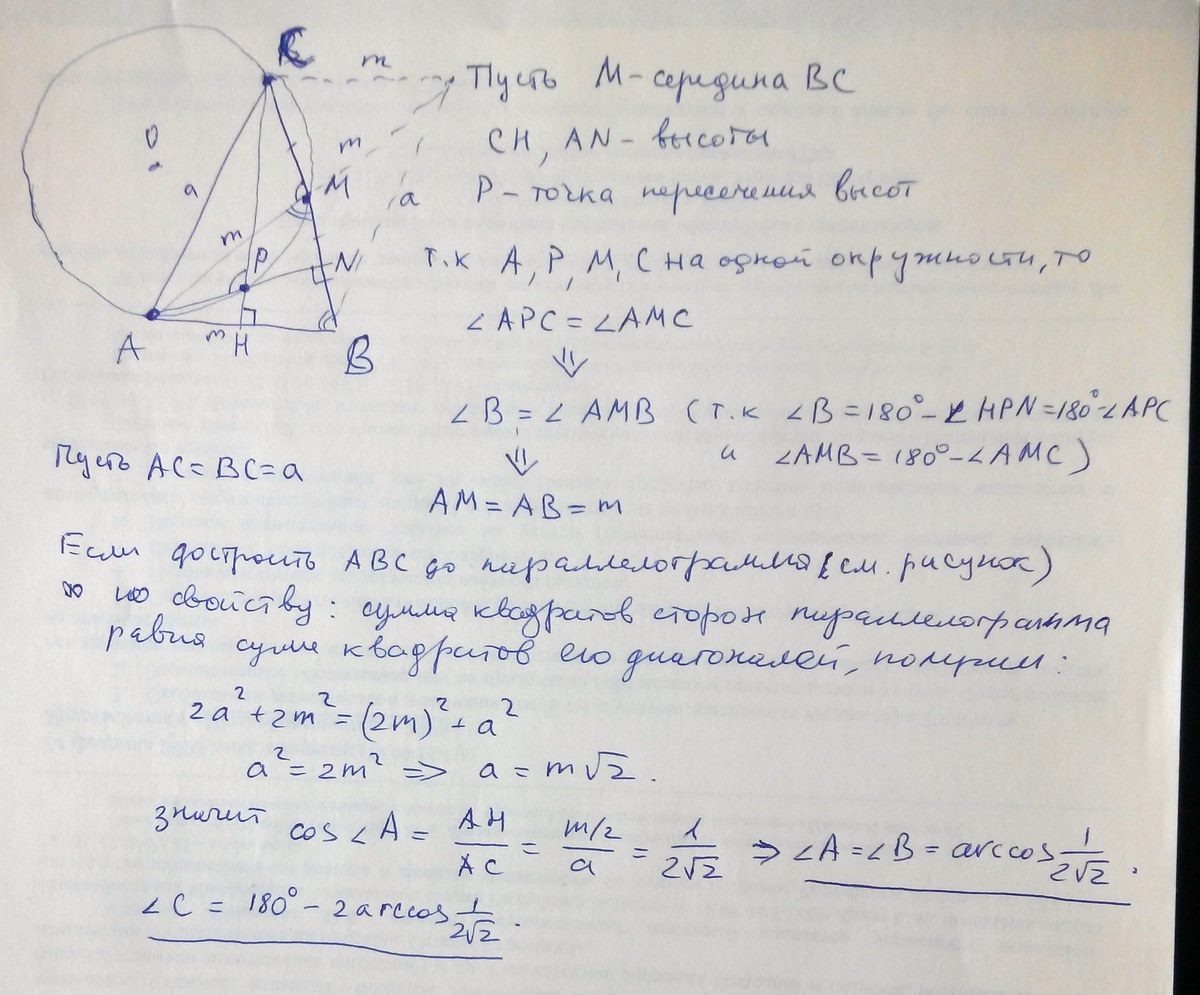 C
m
Пусть M - середина BC
O
m
CH, AN - высоты
a
M
a
P - точка пересечения высот
m
P
N
т.к A, P, M, C на одной окружности, то
A
m
H
B
∠APC = ∠AMC
⇓
∠B = ∠AMB (т.к ∠B = 180° - ∠HPN = 180° - ∠APC
и ∠AMB = 180° - ∠AMC)
⇓
Пусть AC = BC = a
AM = AB = m
Если достроить ABC до параллелограмма (см. рисунок)
то по свойству: сумма квадратов сторон параллелограмма
равна сумме квадратов его диагоналей, получим:
2a² + 2m² = (2m)² + a²
a² = 2m² => a = m√2.
значит cos∠A = AH/AC = (m/2)/a = 1/(2√2) => ∠A = ∠B = arccos 1/(2√2).
∠C = 180° - 2arccos 1/(2√2).